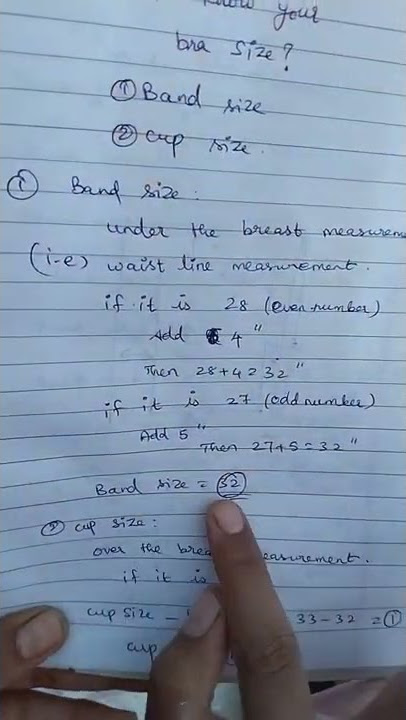 know your
bra size?
① Band size
② cup size.
① Band size:
under the breast
(i-e) waist line measurement.
if it is 28 (even number)
Add 4"
Then 28+4=32"
if it is 27 (odd number)
Add 5"
Then 27+5=32"
Band size = 32
② cup size:
over the measurement.
if it is
cup size - 33-32 = ①
cup